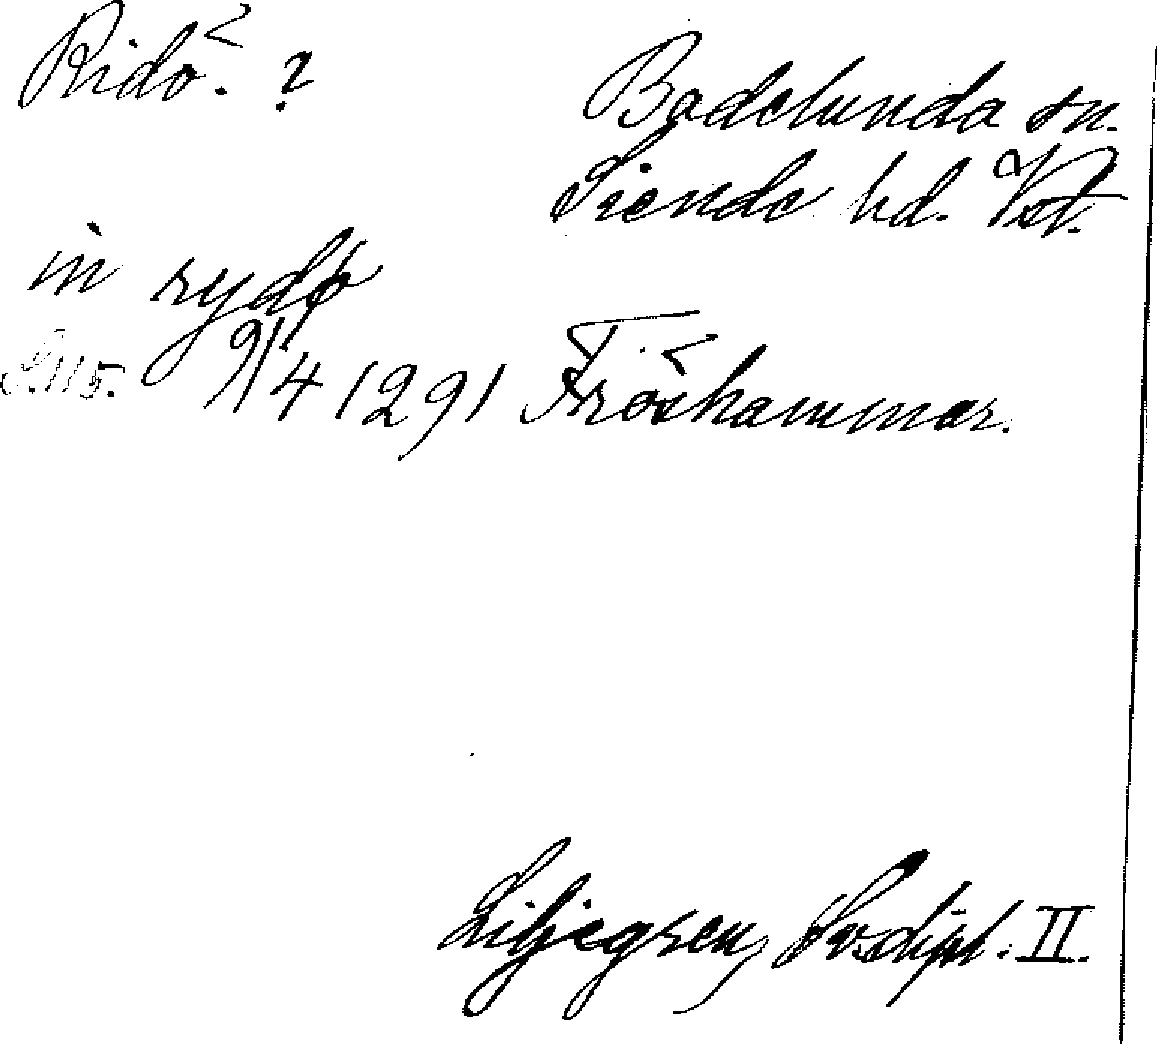 Ridö. ?
Badelunda sn.
Siende hd. Vst.
in rydø
S. 115. 9/4 1291 Fröshammar.
Liljegren, Sv. dipl. II.